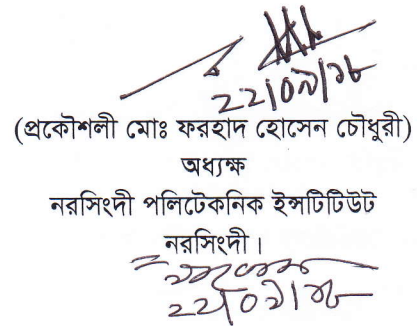 ২২/০৯/১৮
(প্রকৌশলী মোঃ ফরহাদ হোসেন চৌধুরী)
অধ্যক্ষ
নরসিংদী পলিটেকনিক ইন্সটিটিউট
নরসিংদী।
২২/০৯/১৮